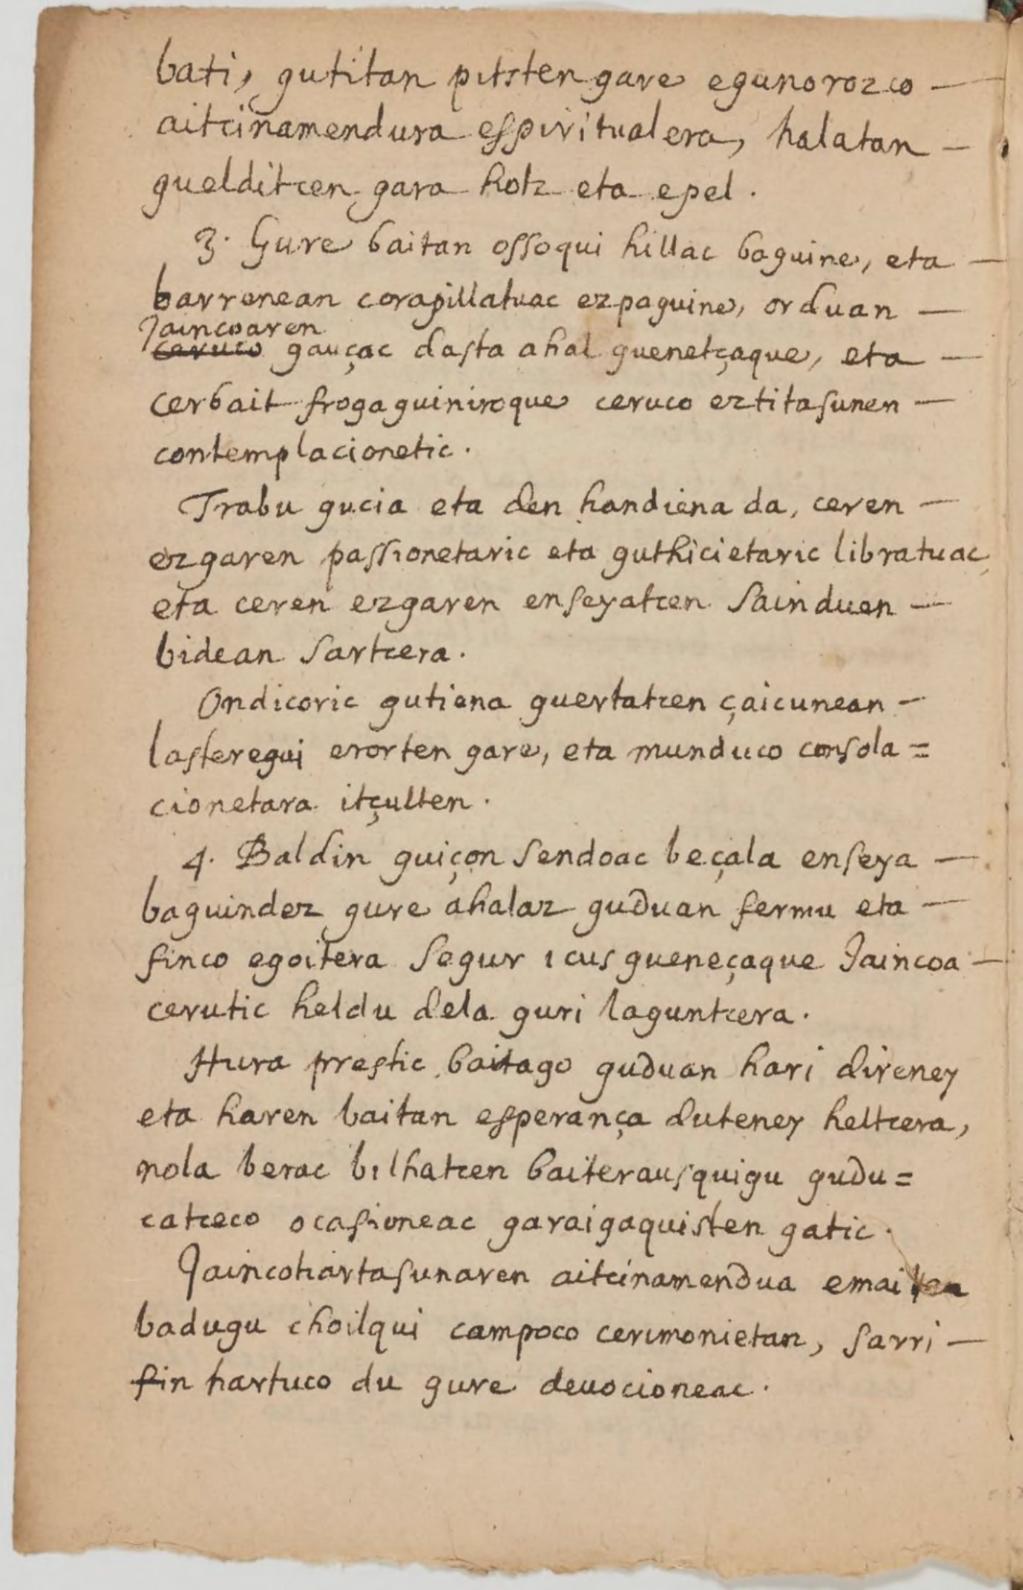 bati, gutitan pitsten gare egunorozco —
aitcinamendura eſpiritualera, halatan —
guelditcen gara hotz eta epel.
3. Gure baitan oſſoqui hillac baguine, eta —
barrenean corapillatuac ezpaguine, orduan —
Jaincoaren
ceruco gauçac daſta ahal guenetçaque, eta —
cerbait frogaguiniroque ceruco eztitaſunen —
contemplacionetic.
Trabu gucia eta den handiena da, ceren —
ezgaren paſſionetaric eta guthicietaric libratuac,
eta ceren ezgaren enſeyatcen Sainduen —
bidean ſartcera.
Ondicoric gutiena guertatcen çaicunean —
laſteregui erorten gare, eta munduco conſola =
cionetara itçulten.
4. Baldin guiçon ſendoac beçala enſeya —
baguindez gure ahalaz guduan fermu eta —
finco egoitera Segur icus gueneçaque Jaincoa —
cerutic heldu dela guri laguntcera.
Hura preſtic baitago guduan hari direney
eta haren baitan eſperança duteney heltcera,
nola berac bilhatcen baiterauſquigu gudu =
catceco ocaſioneac garaigaquisten gatic.
Jaincotiartaſunaren aitcinamendua emaiten
badugu choilqui campoco cerimonietan, ſarri —
fin hartuco du gure deuocioneac.